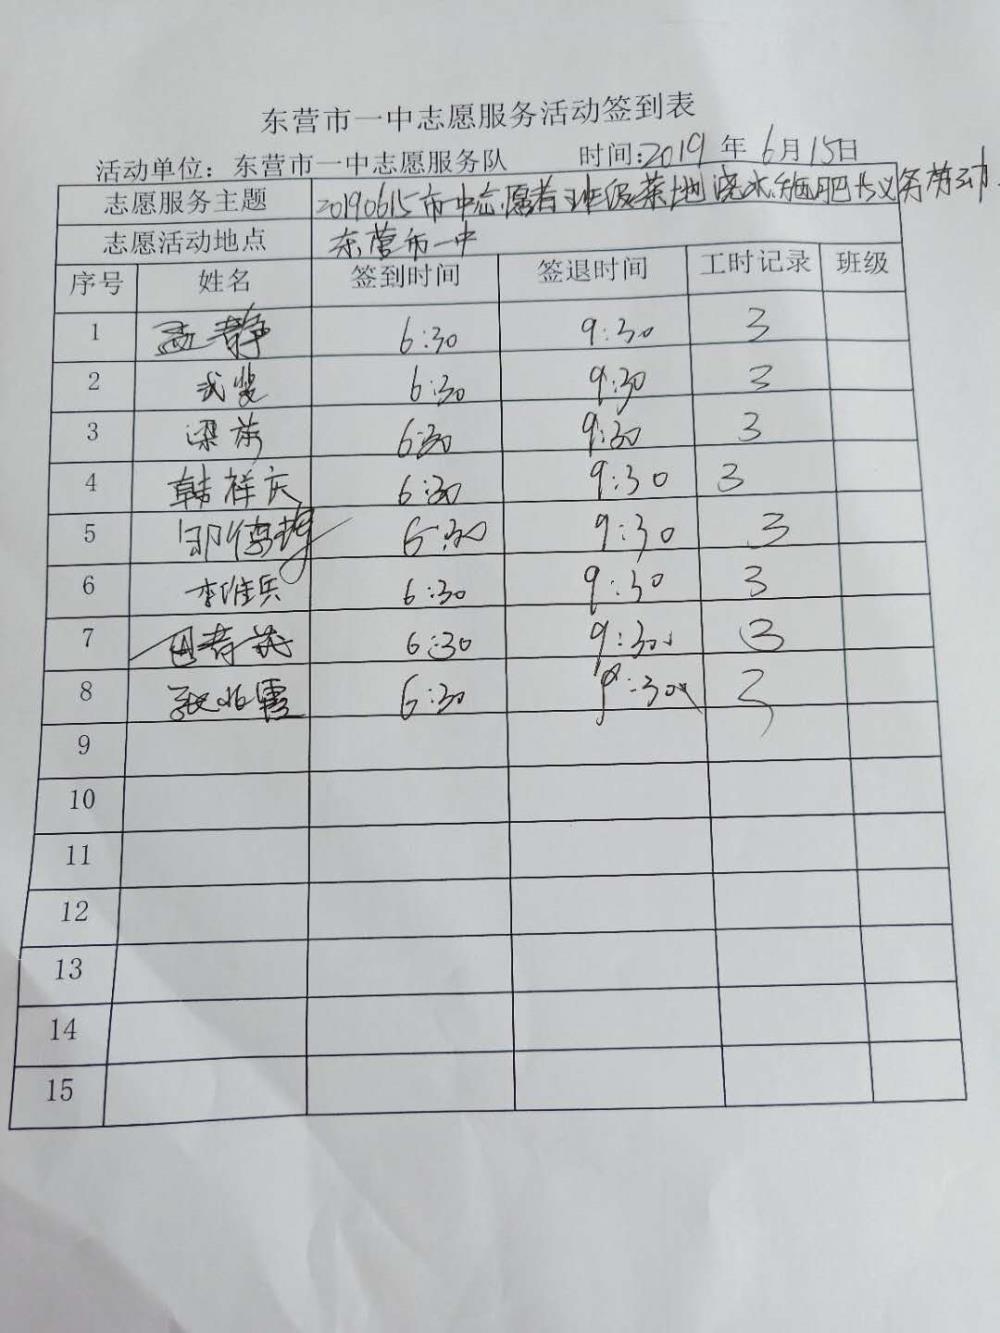 东营市一中志愿服务活动签到表
活动单位：东营市一中志愿服务队 时间:2019年6月15日
志愿服务主题 20190615市一中志愿者班级菜地浇水施肥义务劳动.
志愿活动地点 东营市一中
序号 姓名 签到时间 签退时间 工时记录 班级
1 孟静 6:30 9:30 3
2 武斐 6:30 9:30 3
3 梁 6:30 9:30 3
4 韩祥庆 6:30 9:30 3
5 6:30 9:30 3
6 李维兵 6:30 9:30 3
7 6:30 9:30 3
8 霞 6:30 9:30 3
9
10
11
12
13
14
15